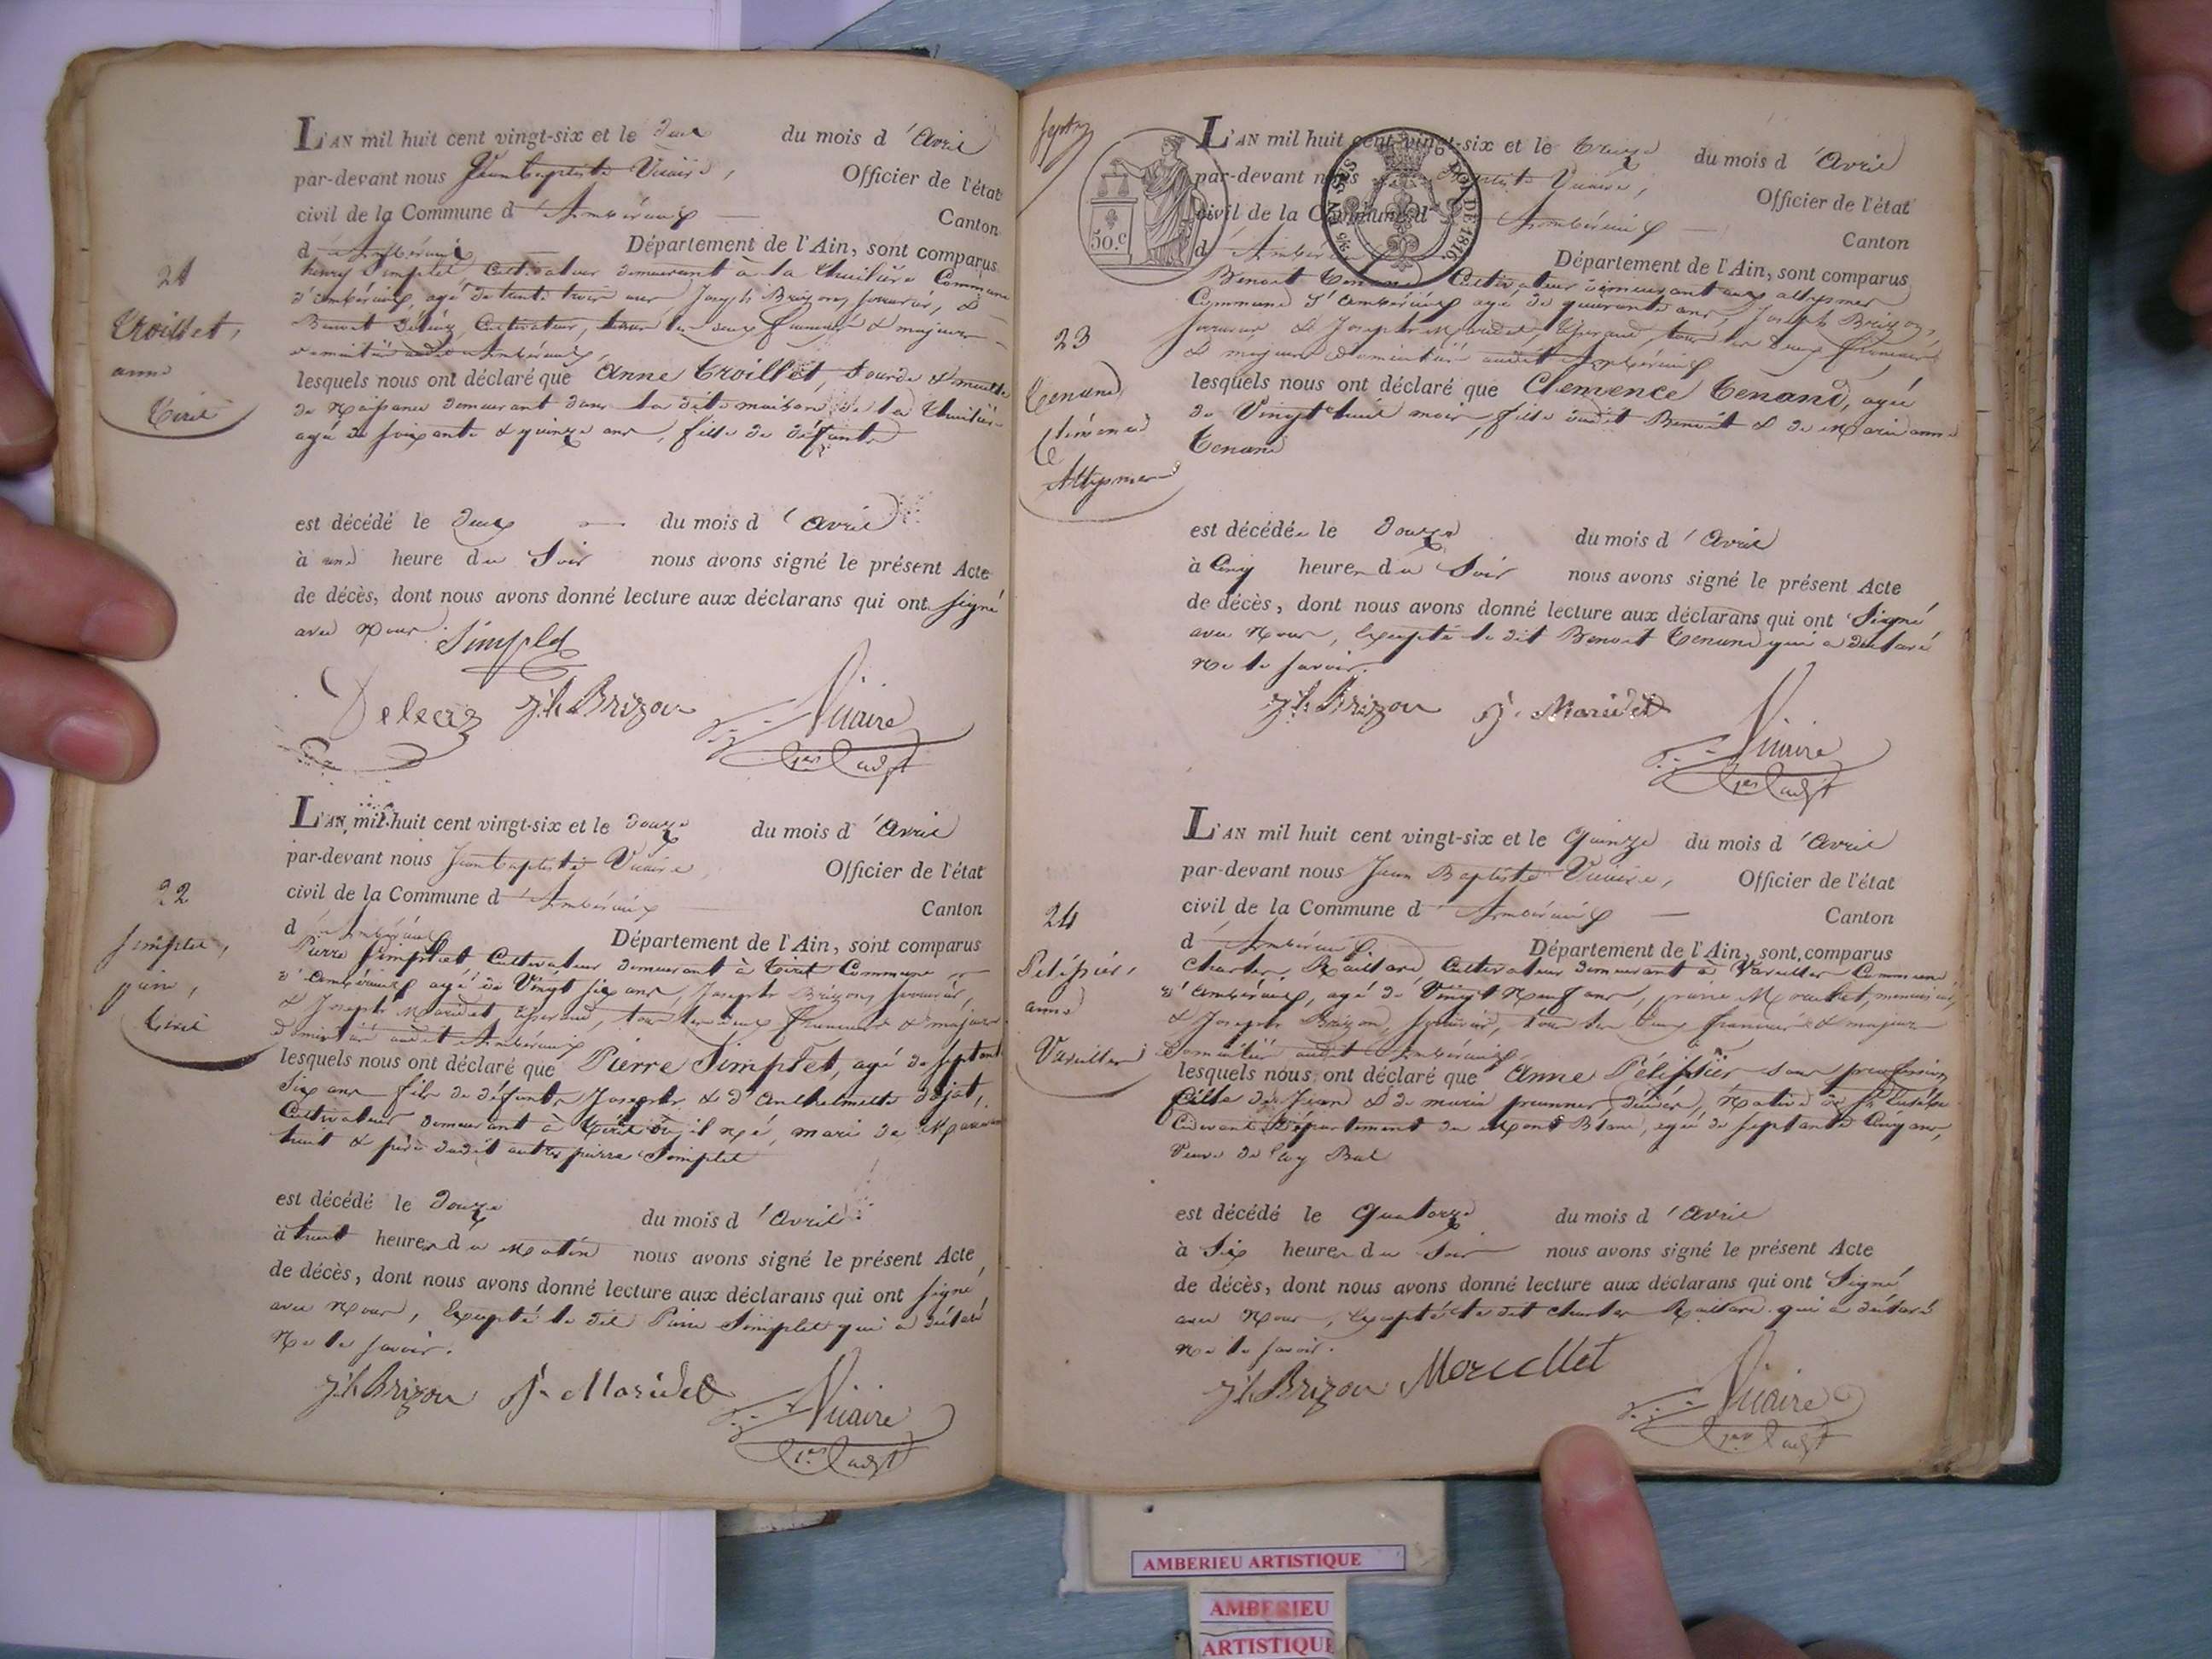 21
Troillet,
anne
Tiret
L'AN mil huit cent vingt-six et le deux du mois d'Avril
par-devant nous Jean Baptiste Vicaire, Officier de l'état
civil de la Commune d'Ambérieux Canton
d'Ambérieux Département de l'Ain, sont comparus
henry Simplet Cultivateur demeurant à la Thuilière Commune
d'ambérieux, agé de trente trois ans Joseph Brizon, serrurier, &
Benoit Cultivateur, tous les deux français & majeurs
domiciliés audit Ambérieux,
lesquels nous ont déclaré que Anne Troillet, Sourde & muette
de Naissance demeurant dans la dite maison de la Thuilière
agée de soixante & quinze ans, fille de défunts
est décédé le deux du mois d'avril
à une heure du Soir nous avons signé le présent Acte
de décès, dont nous avons donné lecture aux déclarans qui ont signé
avec Nous. Simplet
Jh Brizon Vicaire
1er adjt
22
Simplet,
pierre,
Tiret
L'AN mil huit cent vingt-six et le douze du mois d'Avril
par-devant nous Jean Baptiste Vicaire Officier de l'état
civil de la Commune d'Ambérieux Canton
d'Ambérieux Département de l'Ain, sont comparus
Pierre Simplet Cultivateur demeurant à Tiret Commune
d'Ambérieux agé de Vingt six ans, Joseph Brizon, serrurier,
& Joseph Maridet, tous les deux français & majeurs
domiciliés audit Ambérieux
lesquels nous ont déclaré que Pierre Simplet, agé de septante
Six ans fils de défunts Joseph & d'Anthelmette
Cultivateur demeurant à Tiret où il né, mari de
& père dudit autre pierre Simplet
est décédé le douze du mois d'Avril
à huit heures du Matin nous avons signé le présent Acte
de décès, dont nous avons donné lecture aux déclarans qui ont signé
avec Nous, Excepté le dit Pierre Simplet qui a déclaré
Ne le savoir.
Jh Brizon J. Maridet Vicaire
1er adjt
50.c
LOI DE 1816
23
Tenand
Clémence
Attignier
L'AN mil huit cent vingt-six et le treize du mois d'Avril
par-devant nous Baptiste Vicaire, Officier de l'état
civil de la Commune d'Ambérieux Canton
d'Ambérieux Département de l'Ain, sont comparus
Benoit Tenand Cultivateur demeurant aux
Commune d'Ambérieux agé de quarante ans, Joseph Brizon,
serrurier & Joseph Maridet, tous les deux français
& majeurs domiciliés audit Ambérieux
lesquels nous ont déclaré que Clemence Tenand, agée
de Vingt huit mois, fille dudit Benoit & de Marie anne
Tenand
est décédée le douze du mois d'Avril
à Cinq heures du Soir nous avons signé le présent Acte
de décès, dont nous avons donné lecture aux déclarans qui ont Signé
avec Nous, Excepté le dit Benoit Tenand qui a déclaré
Ne le savoir.
Jh Brizon J. Maridet
Vicaire
1er adjt
24
Pélissier,
anne
Vareilles
L'AN mil huit cent vingt-six et le Quinze du mois d'Avril
par-devant nous Jean Baptiste Vicaire, Officier de l'état
civil de la Commune d'Ambérieux Canton
d'Ambérieux Département de l'Ain, sont comparus
Charles Cultivateur demeurant à Vareilles Commune
d'Ambérieux, agé de Vingt Neuf ans, menuisier,
& Joseph Brizon, serrurier, tous les deux français & majeurs
Domiciliés audit Ambérieux,
lesquels nous ont déclaré que Anne Pélissier sans profession
fille de Jean & de marie Native de
Cidevant Département du Mont Blanc, agée de septante Cinq ans,
Veuve de
est décédé le Quatorze du mois d'Avril
à Six heures du Soir nous avons signé le présent Acte
de décès, dont nous avons donné lecture aux déclarans qui ont Signé
avec Nous, Excepté le dit Charles qui a déclaré
Ne le savoir.
Jh Brizon Vicaire
1er adjt
AMBERIEU ARTISTIQUE
AMBERIEU
ARTISTIQUE